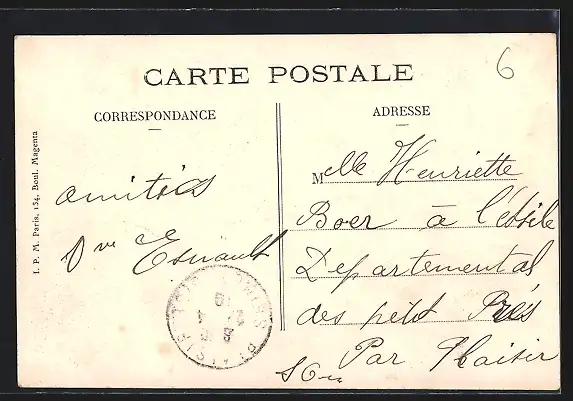 CARTE POSTALE
6
CORRESPONDANCE
ADRESSE
I. P. M. Paris, 134, Boul. Magenta
amitiés
Vve Esnault
Melle Henriette
Boer à l'Asile
Departemental
des petit Prés
Par Plaisir
S et O